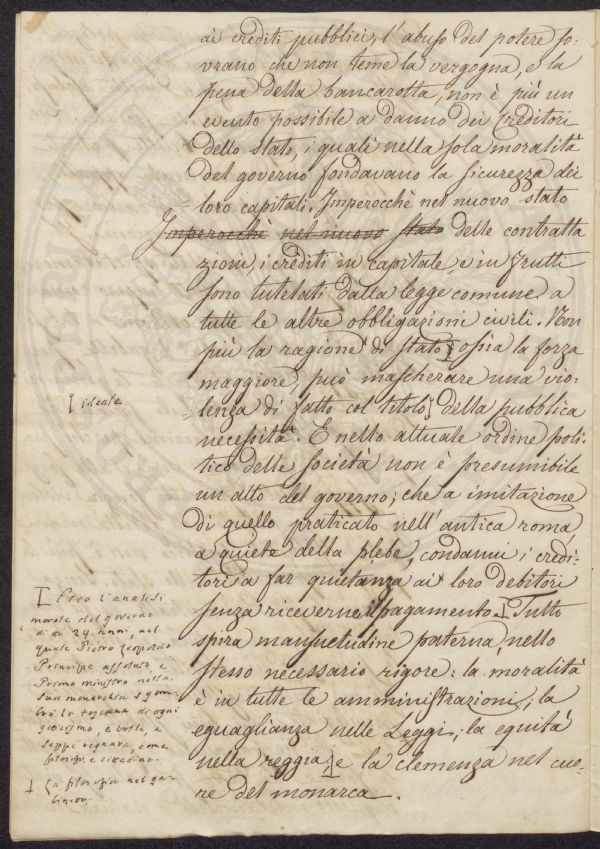 ai crediti pubblici, l'abuso del potere so-
vrano che non teme la vergogna, e la
pena della bancarotta, non è più un
evento possibile a danno dei Creditori
dello stato, i quali nella sola moralità
del governo fondavano la sicurezza dei
loro capitali. Imperocchè nel nuovo stato
Imperocchè nel nuovo stato delle contratta
zioni, i crediti in capitale, e in frutti
sono tutelati dalla legge comune a
tutte le altre obbligazioni civili. Non
più la ragione di stato, ossia la forza
maggiore, può mascherare una vio-
ideale
lenza di fatto col titolo della pubblica
necessità. E nello attuale ordine poli-
tico delle Società non è presumibile
un atto del governo, che a imitazione
di quello praticato nell'antica roma
a quiete della plebe, condanni i credi-
tori a far quietanza ai loro debitori
senza riceverne il pagamento. Tutto
spira mansuetudine paterna nello
stesso necessario rigore: la moralità
è in tutte le amministrazioni, la
eguaglianza nelle Leggi, la equità
nella reggia, e la clemenza nel cuo-
re del monarca.
Ecco l'analisi
morale del governo
di 24 anni, nel
quale Pietro Leopoldo
Principe assoluto, e
Primo ministro nella
sua monarchia sgom-
brò la toscana di ogni
, e volle, e
seppe regnare, come
filosofo e cittadino.
La filosofia nel ga-
binetto.